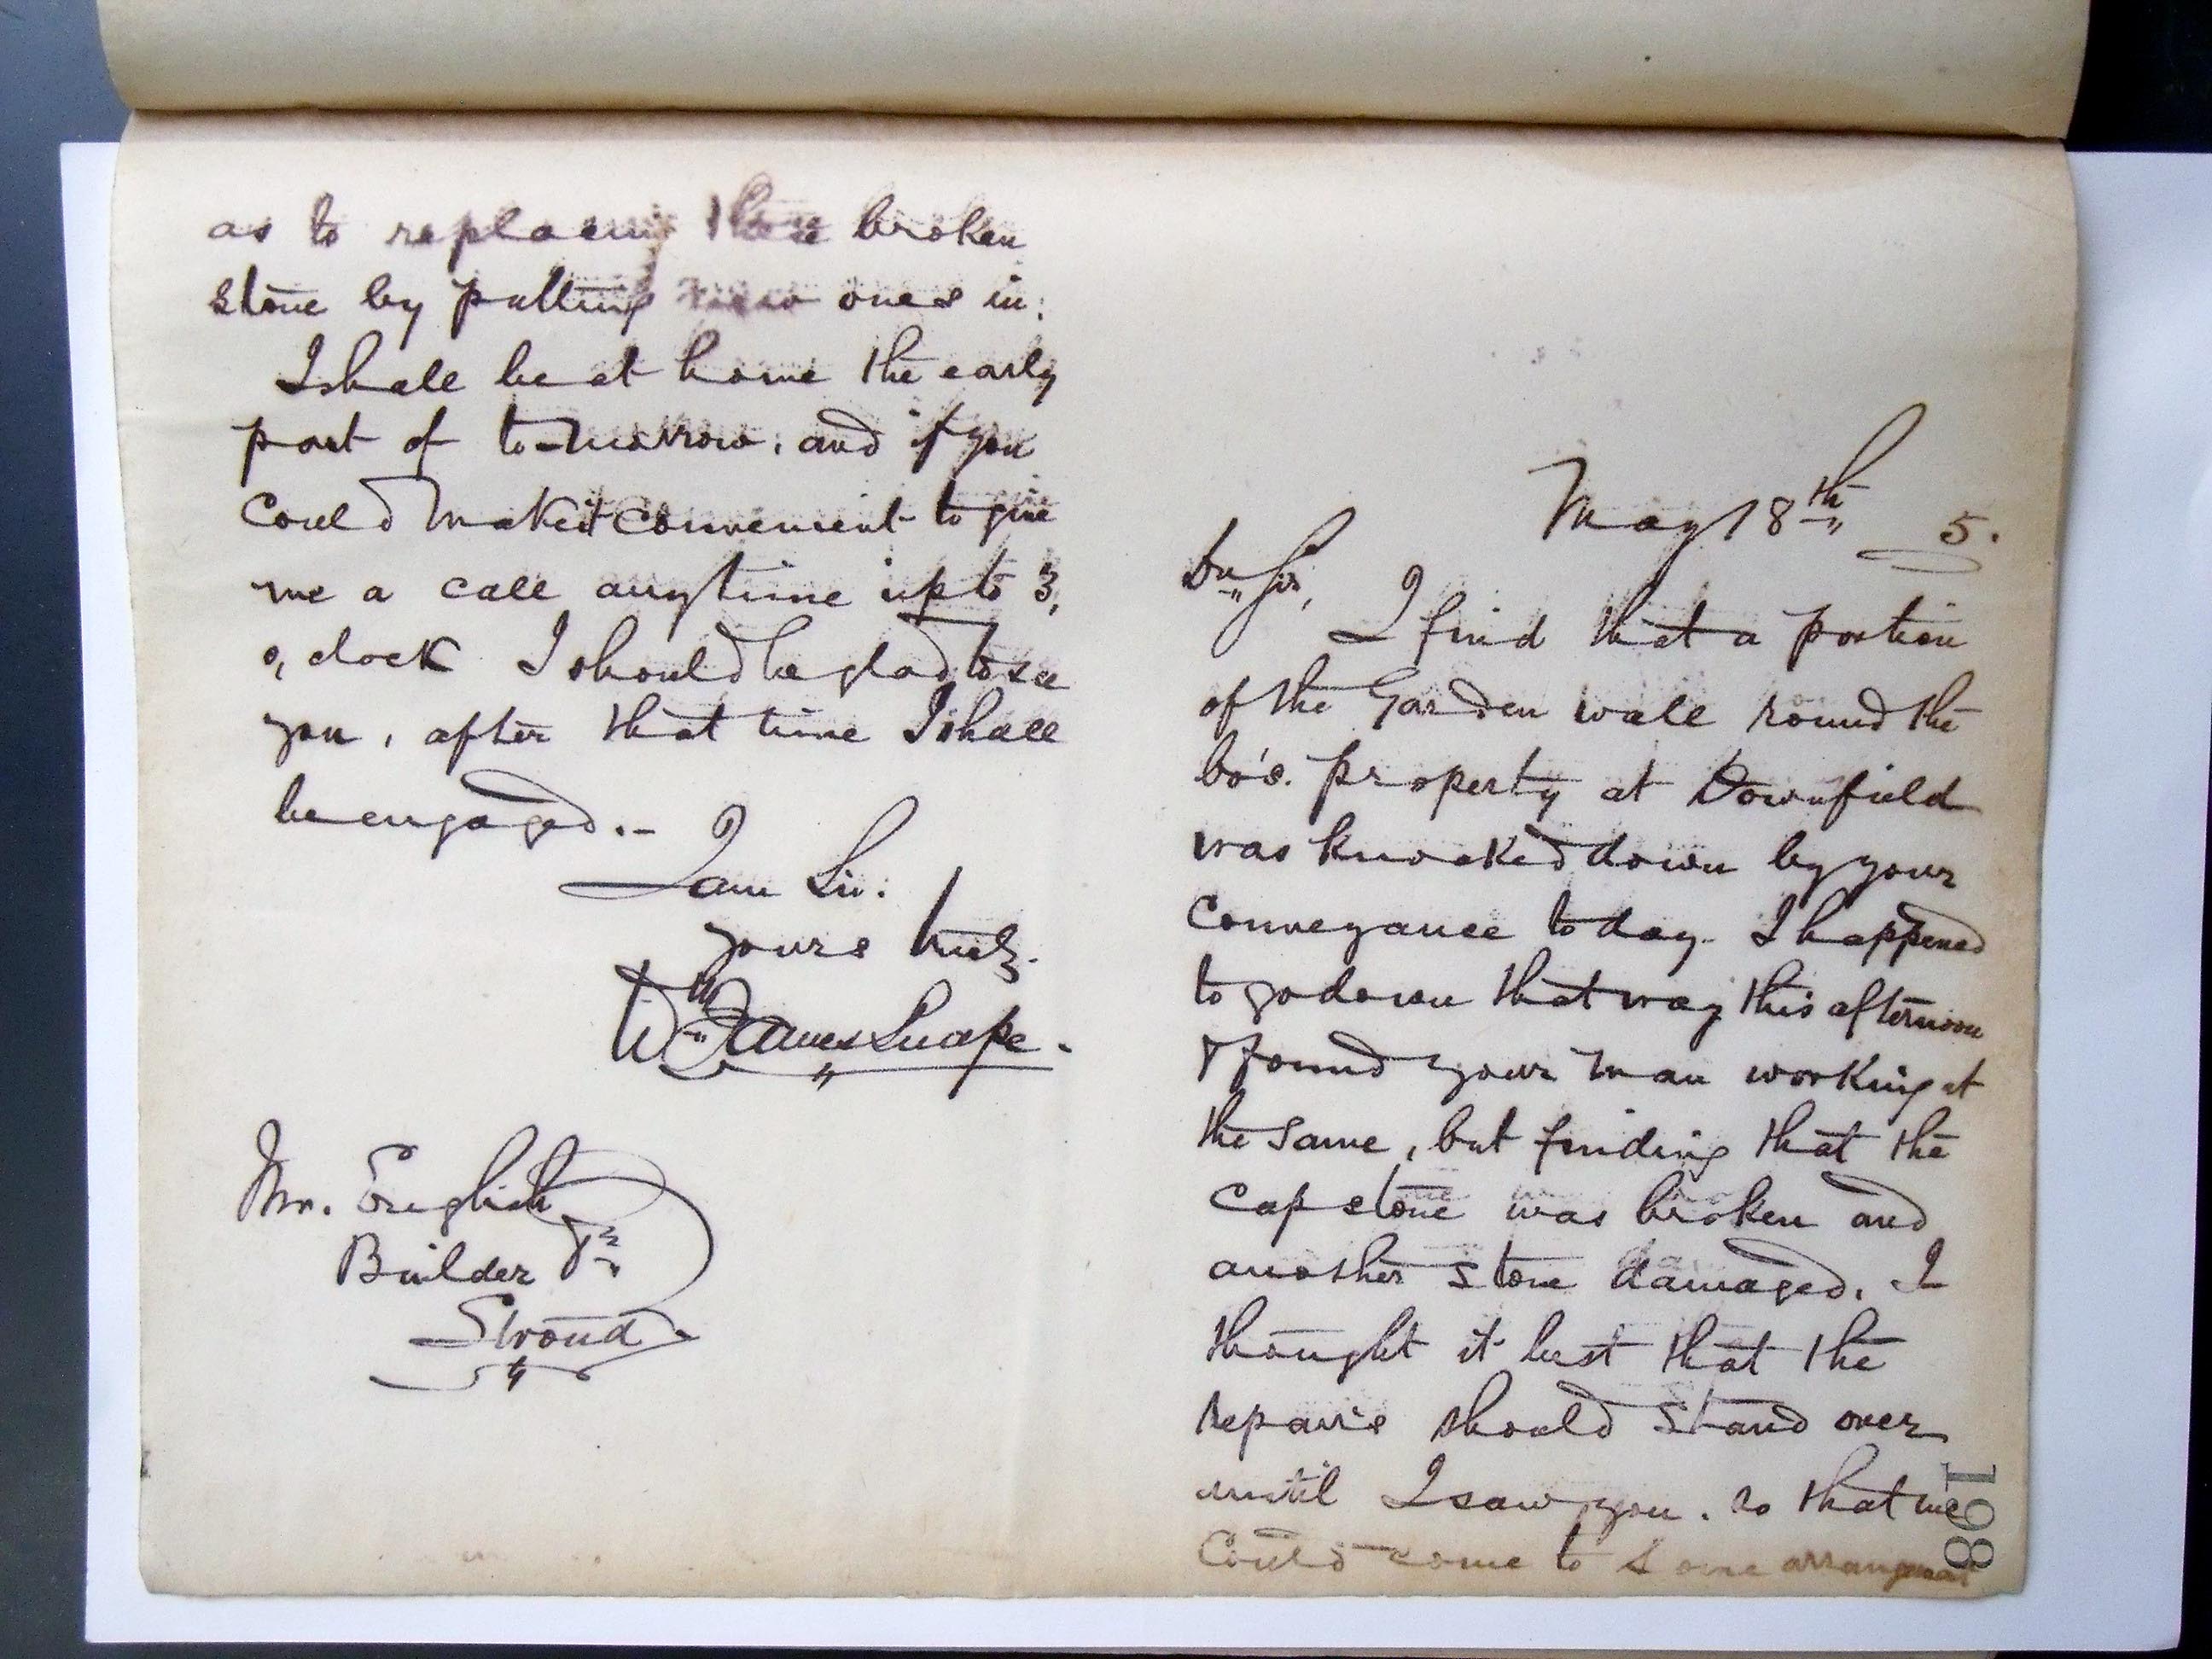 May 18th 5.
Dr Sir,
I find that a portion
of the Garden wall round the
Co's. property at Downfield
was knocked down by your
Conveyance to day. I happened
to go down that way this afternoon
& found your man working at
the same, but finding that the
cap stone was broken and
another stone damaged. I
thought it best that the
repairs should stand over
until I saw you. so that we
Could come to some arrangement
198
as to replacing these broken
stone by putting new ones in.
I shall be at home the early
part of to-morrow. and if you
could make it convenient to give
me a call anytime up to 3,
o,clock I should be glad to see
you, after that time I shall
be engaged.-
I am Sir.
yours truly.
Wm James Snape.
Mr. English
Builder &c
Stroud